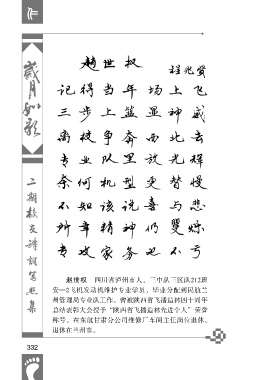 作
岁月如歌
二期校友诗词写照集
赵世权
程兆贤
记得当年场上飞
三步上篮显神威
离校争奔西北去
专业队里放光辉
奈何机型更替慢
不知该说喜与悲
所幸精神仍矍烁
专攻家务也不亏
赵世权 四川省泸州市人，三中队三区队212班
安—2飞机发动机维护专业学员，毕业分配到民航兰
州管理局专业队工作。曾被陕西省飞播造林四十周年
总结表彰大会授予“陕西省飞播造林先进个人”荣誉
称号。在东航甘肃分公司维修厂车间主任岗位退休。
退休在兰州市。
332